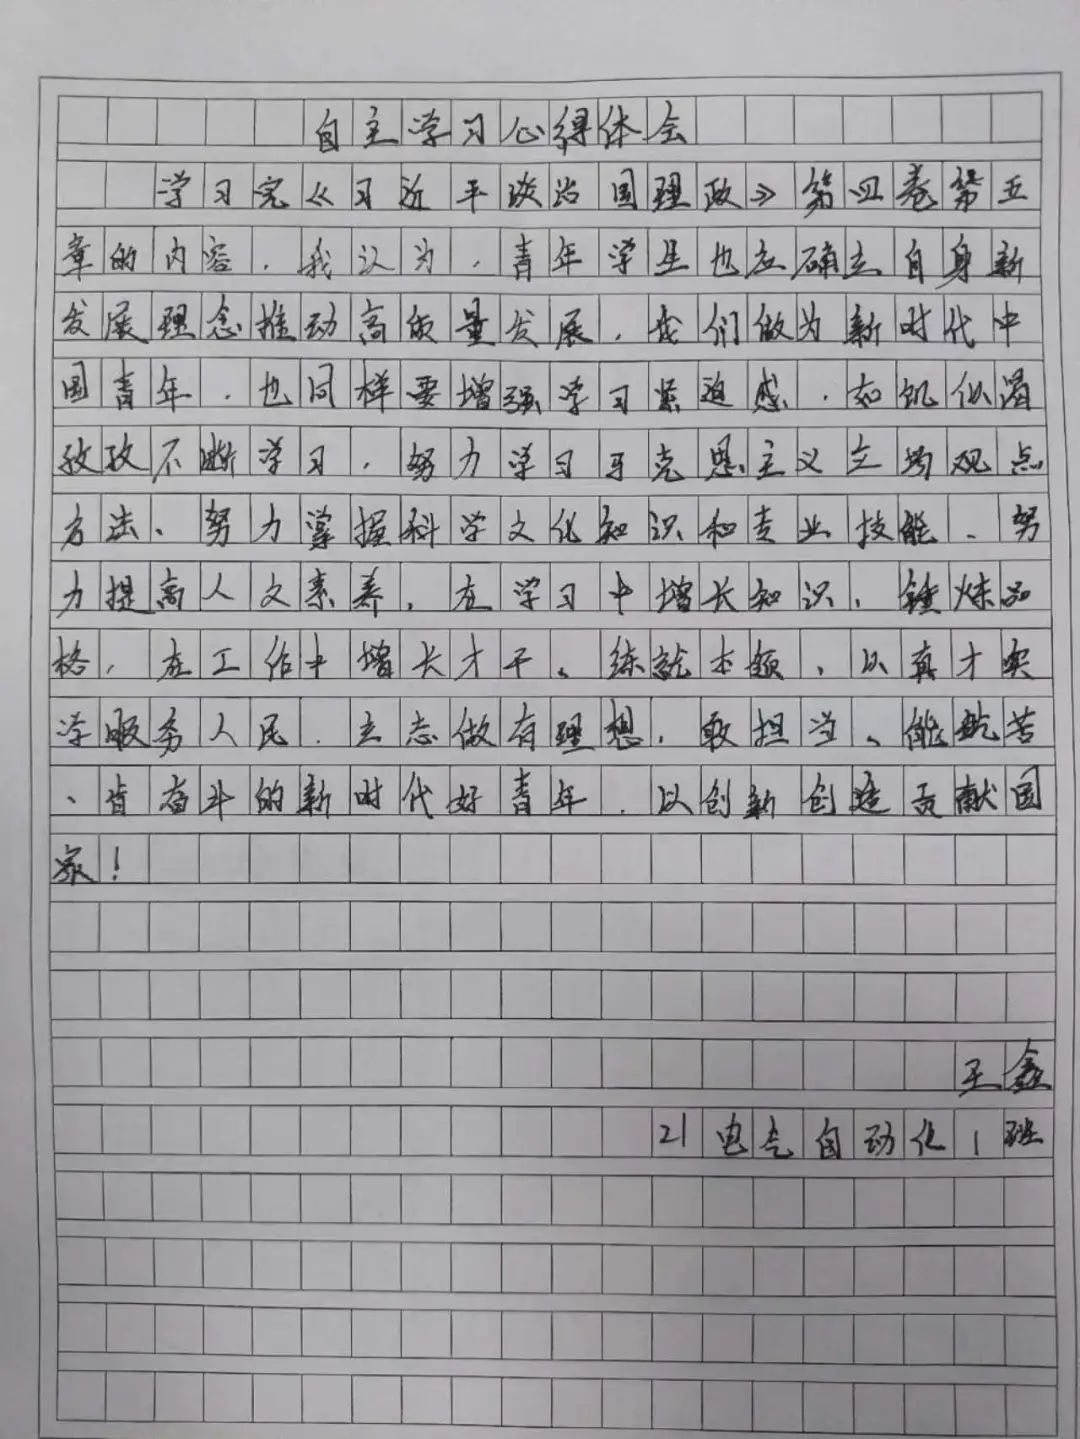 自主学习心得体会
学习完《习近平谈治国理政》第四卷第五
章的内容，我认为，青年学生也应确立自身新
发展理念推动高质量发展，我们做为新时代中
国青年，也同样要增强学习紧迫感，如饥似渴
孜孜不断学习，努力学习马克思主义立场观点
方法、努力掌握科学文化知识和专业技能、努
力提高人文素养，在学习中增长知识、锤炼品
格，在工作中增长才干、练就本领，以真才实
学服务人民，立志做有理想，敢担当、能吃苦
、肯奋斗的新时代好青年，以创新创造贡献国
家！
王鑫
21电气自动化1班